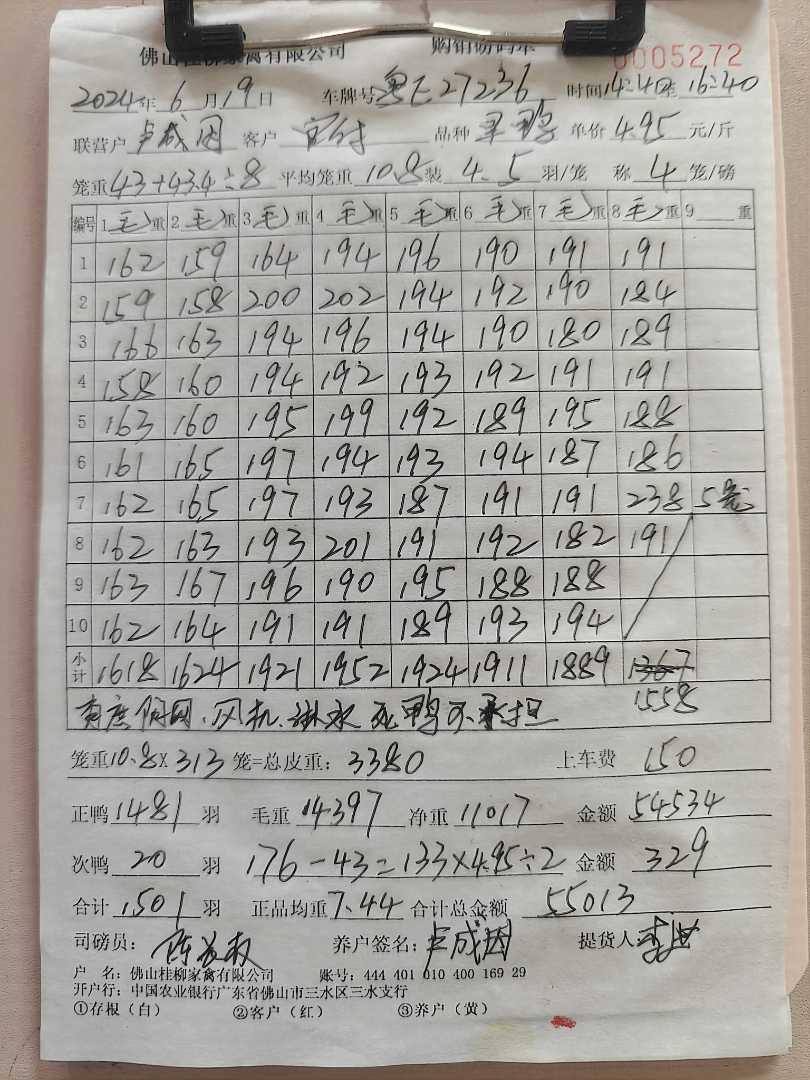 佛山桂柳家禽有限公司 购销磅码单 0005272
2024年6月19日 车牌号粤E27236 时间14:40至16:40
联营户卢成因 客户 品种 单价4.95元/斤
笼重43+43.4÷8 平均笼重10.8装4.5羽/笼 称4笼/磅
编号 1毛重 2毛重 3毛重 4毛重 5毛重 6毛重 7毛重 8毛重 9重
1 162 159 164 194 196 190 191 191
2 159 158 200 202 194 192 190 184
3 166 163 194 196 194 190 180 189
4 158 160 194 192 193 192 191 191
5 163 160 195 199 192 189 195 188
6 161 165 197 194 193 194 187 186
7 162 165 197 193 187 191 191 238 5笼
8 162 163 193 201 191 192 182 191
9 163 167 196 190 195 188 188
10 162 164 191 191 189 193 194
小计 1618 1624 1921 1952 1924 1911 1889 1367
有 风机、淋水 死鸭不承担 1558
笼重10.8×313笼=总皮重:3380 上车费150
正鸭1481羽 毛重14397 净重11017 金额54534
次鸭20羽 176-43=133×4.95÷2 金额329
合计1501羽 正品均重7.44 合计总金额55013
司磅员: 养户签名:卢成因 提货人:
户 名:佛山桂柳家禽有限公司 账号:444 401 010 400 169 29
开户行:中国农业银行广东省佛山市三水区三水支行
①存根(白) ②客户(红) ③养户(黄)